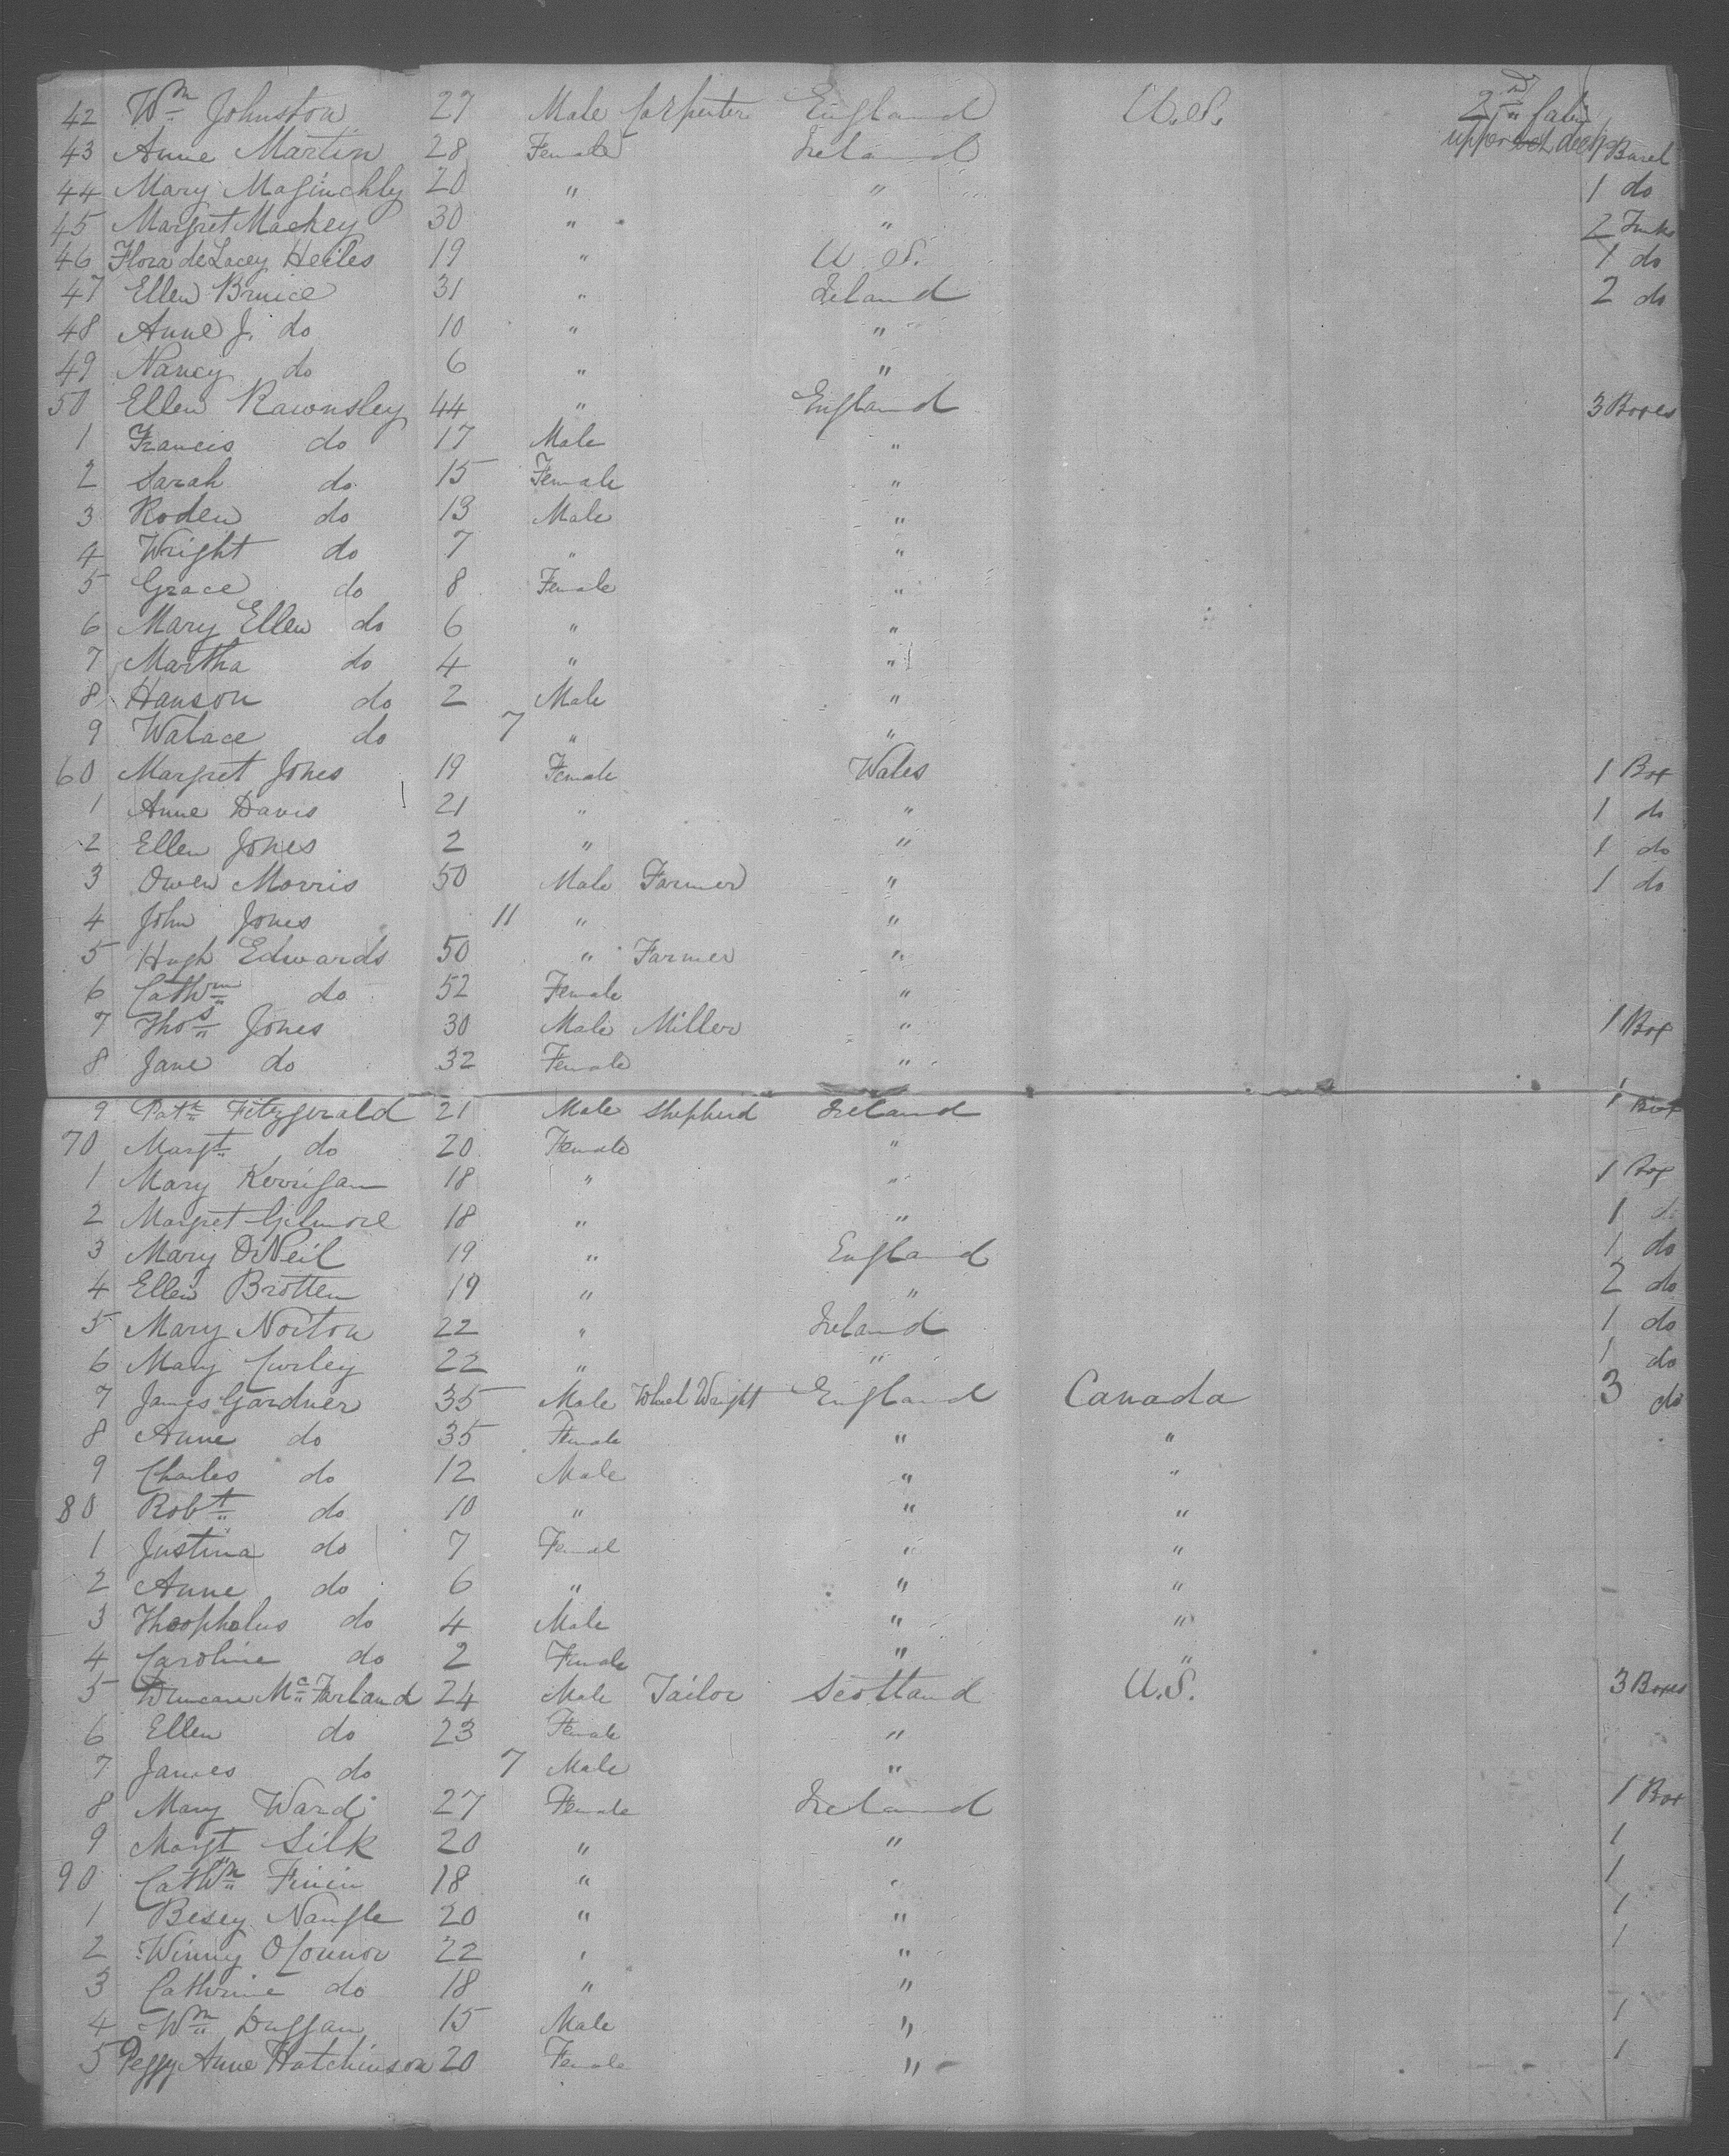 42 Wm Johnston 27 Male Carpenter England U.S. 2nd Cabin
43 Anne Martin 28 Female Ireland upper deck 1 Barel
44 Mary Maginchly 20 " " 1 do
45 Margret Mackey 30 " " 2 Trnks
46 Flora de Lacey Heiles 19 " U S. 1 do
47 Ellen Bruice 31 " Ireland 2 do
48 Anne J. do 10 " "
49 Nancy do 6 " "
50 Ellen Rawnsley 44 " England 3 Boxes
1 Francis do 17 Male "
2 Sarah do 15 Female "
3 Roden do 13 Male "
4 Wright do 7 " "
5 Grace do 8 Female "
6 Mary Ellen do 6 " "
7 Martha do 4 " "
8 Hanson do 2 Male "
9 Walace do 7 " "
60 Margret Jones 19 Female Wales 1 Box
1 Anne Davis 21 " " 1 do
2 Ellen Jones 2 " " 1 do
3 Owen Morris 50 Male Farmer " 1 do
4 John Jones 11 " "
5 Hugh Edwards 50 " Farmer "
6 Cathrn do 52 Female "
7 Thos Jones 30 Male Miller " 1 Box
8 Jane do 32 Female "
9 Patk Fitzgerald 21 Male Shepherd Ireland 1 Box
70 Margt do 20 Female "
1 Mary Kerrigan 18 " " 1 Box
2 Margret Gilmore 18 " " 1 do
3 Mary O'Neil 19 " England 1 do
4 Ellen Brotten 19 " " 2 do
5 Mary Norton 22 " Ireland 1 do
6 Mary Curley 22 " " 1 do
7 James Gardner 35 Male Wheel Wright England Canada 3 do
8 Anne do 35 Female " "
9 Charles do 12 Male " "
80 Robt do 10 " " "
1 Justina do 7 Femal " "
2 Anne do 6 " " "
3 Theopholus do 4 Male " "
4 Caroline do 2 Female " "
5 Duncan McFarland 24 Male Tailor Scotland U.S. 3 Boxes
6 Ellen do 23 Female "
7 James do 7 Male "
8 Mary Ward 27 Female Ireland 1 Box
9 Margt Silk 20 " " 1
90 Cathrn Finin 18 " " 1
1 Besey Nangle 20 " " 1
2 Winny O'Connor 22 " " 1
3 Cathrine do 18 " "
4 Wm Duggan 15 Male " 1
5 Peggy Anne Hutchinson 20 Female " 1